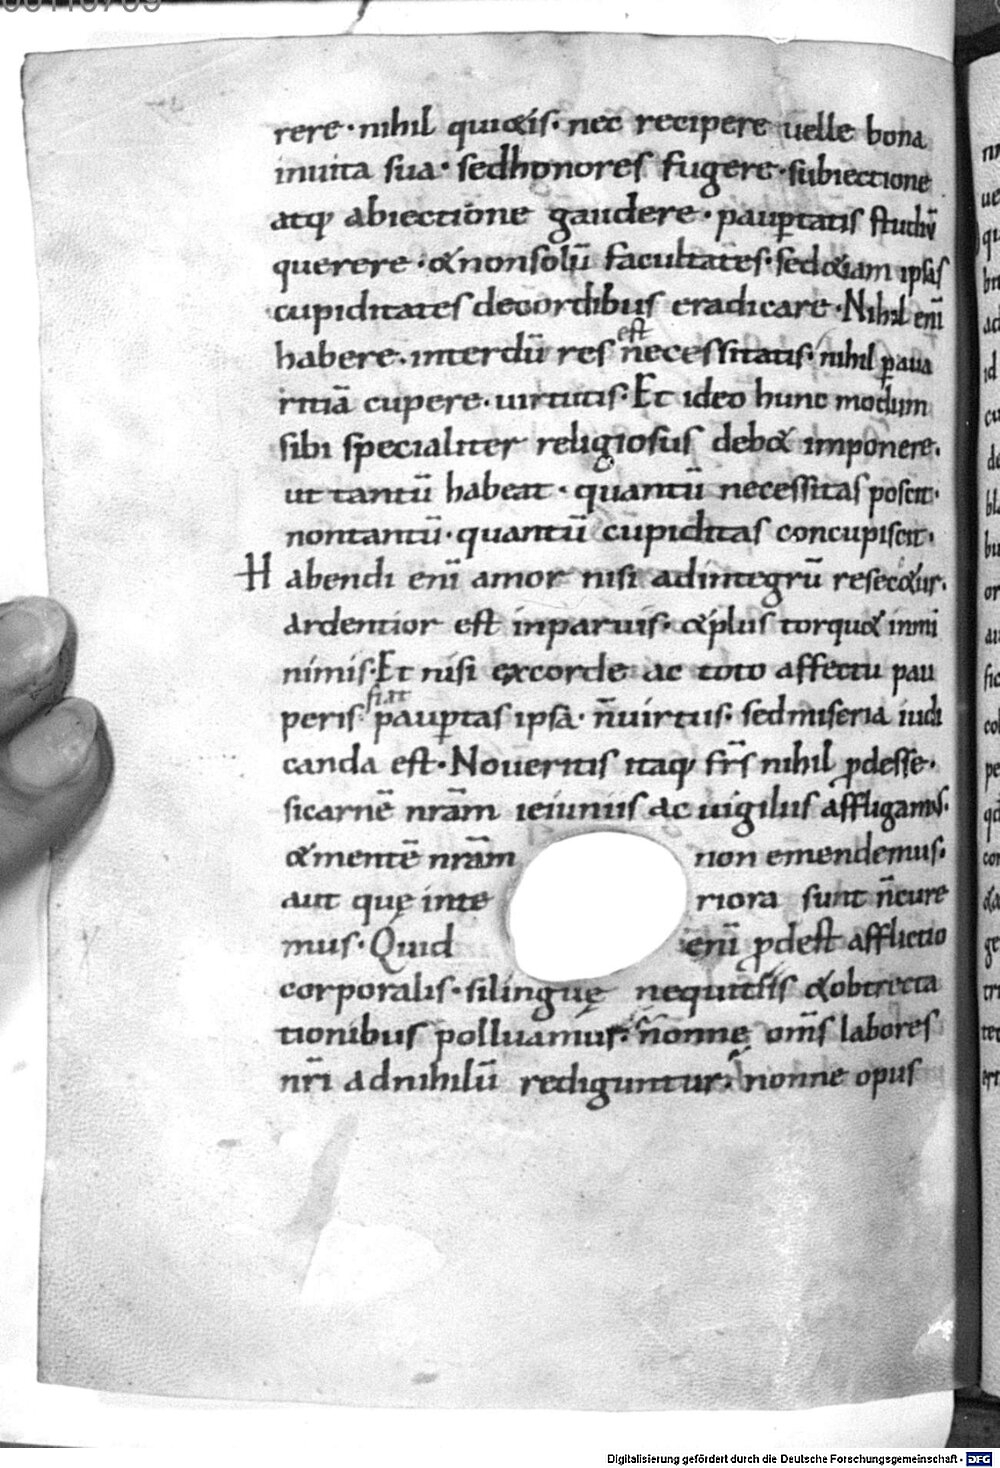 rere · nihil qui&is · nec recipere uelle bona
inuita sua · sed honores fugere · subiectione
atq; abiectione gaudere · paup̱tatis studiū
querere · & non solū facultates · sed &iam ipsas
cupiditates de cordibus eradicare · Nihil enī
habere · interdū res est necessitatis · nihil p̱ aua
ritiā cupere · uirtutis · Et ideo hunc modum
sibi specialiter religiosus deb& imponere ·
ut tantū habeat · quantū necessitas poscit ·
non tantū · quantū cupiditas concupiscit ·
Habendi enī amor nisi ad integrū resec&ur ·
ardentior est in paruis · & plus torqu& in mi
nimis · Et nisi ex corde ac toto affectu pau
peris fiat paup̱tas ipsa · n̄ uirtus · sed miseria iudi
canda est · Noueritis itaq; fr̄s nihil ꝓdesse ·
si carnē nr̄am ieiuniis ac uigiliis affligamus ·
& mentē nr̄am non emendemus ·
aut quę inte riora sunt n̄ cure
mus · Quid enī ꝓdest afflictio
corporalis · si linguę nequitiis & obtrecta
tionibus polluamus · nonne om̄s labores
nr̄i ad nihilū rediguntur · nonne opus
Digitalisierung gefördert durch die Deutsche Forschungsgemeinschaft - DFG